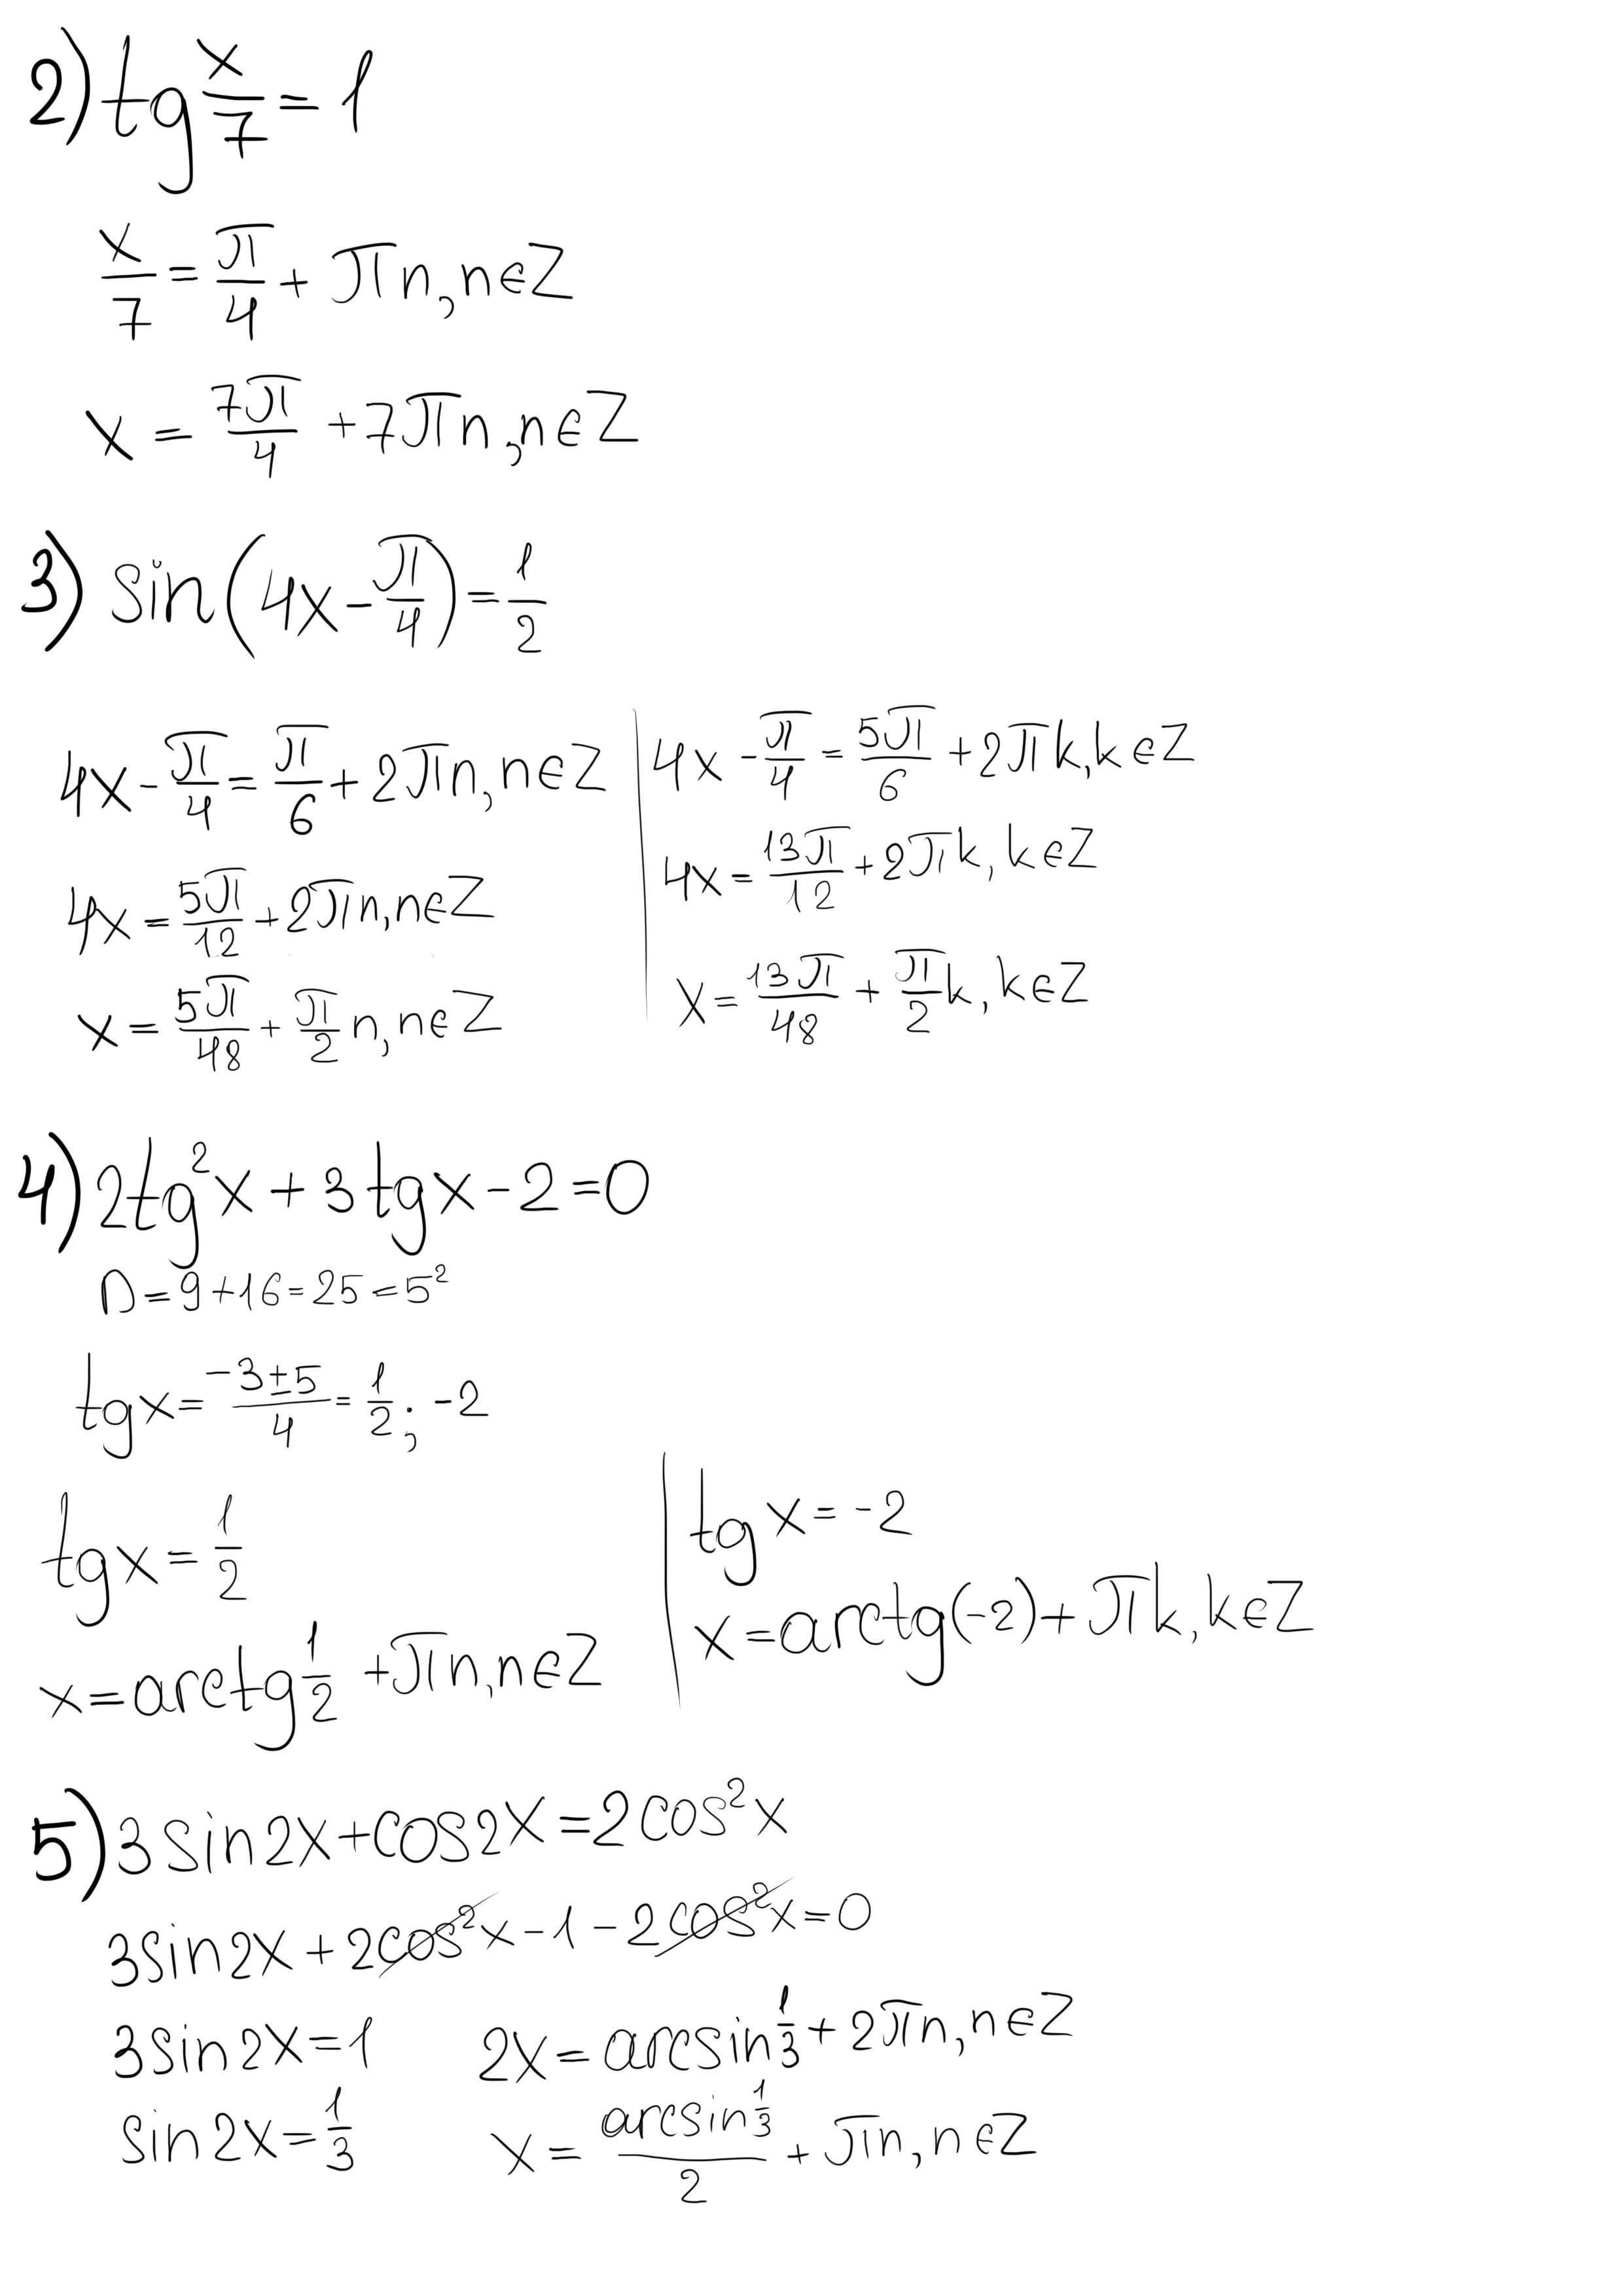 2) tg x/7 = 1
x/7 = π/4 + πn, n∈Z
x = 7π/4 + 7πn, n∈Z
3) sin(4x - π/4) = 1/2
4x - π/4 = π/6 + 2πn, n∈Z
4x = 5π/12 + 2πn, n∈Z
x = 5π/48 + π/2 n, n∈Z
4x - π/4 = 5π/6 + 2πk, k∈Z
4x = 13π/12 + 2πk, k∈Z
x = 13π/48 + π/2 k, k∈Z
4) 2tg²x + 3tgx - 2 = 0
D = 9 + 16 = 25 = 5²
tgx = (-3 ± 5)/4 = 1/2 ; -2
tgx = 1/2
x = arctg 1/2 + πn, n∈Z
tgx = -2
x = arctg(-2) + πk, k∈Z
5) 3sin2x + cos2x = 2cos²x
3sin2x + 2cos²x - 1 - 2cos²x = 0
3sin2x = 1
sin2x = 1/3
2x = arcsin 1/3 + 2πn, n∈Z
x = (arcsin 1/3)/2 + πn, n∈Z